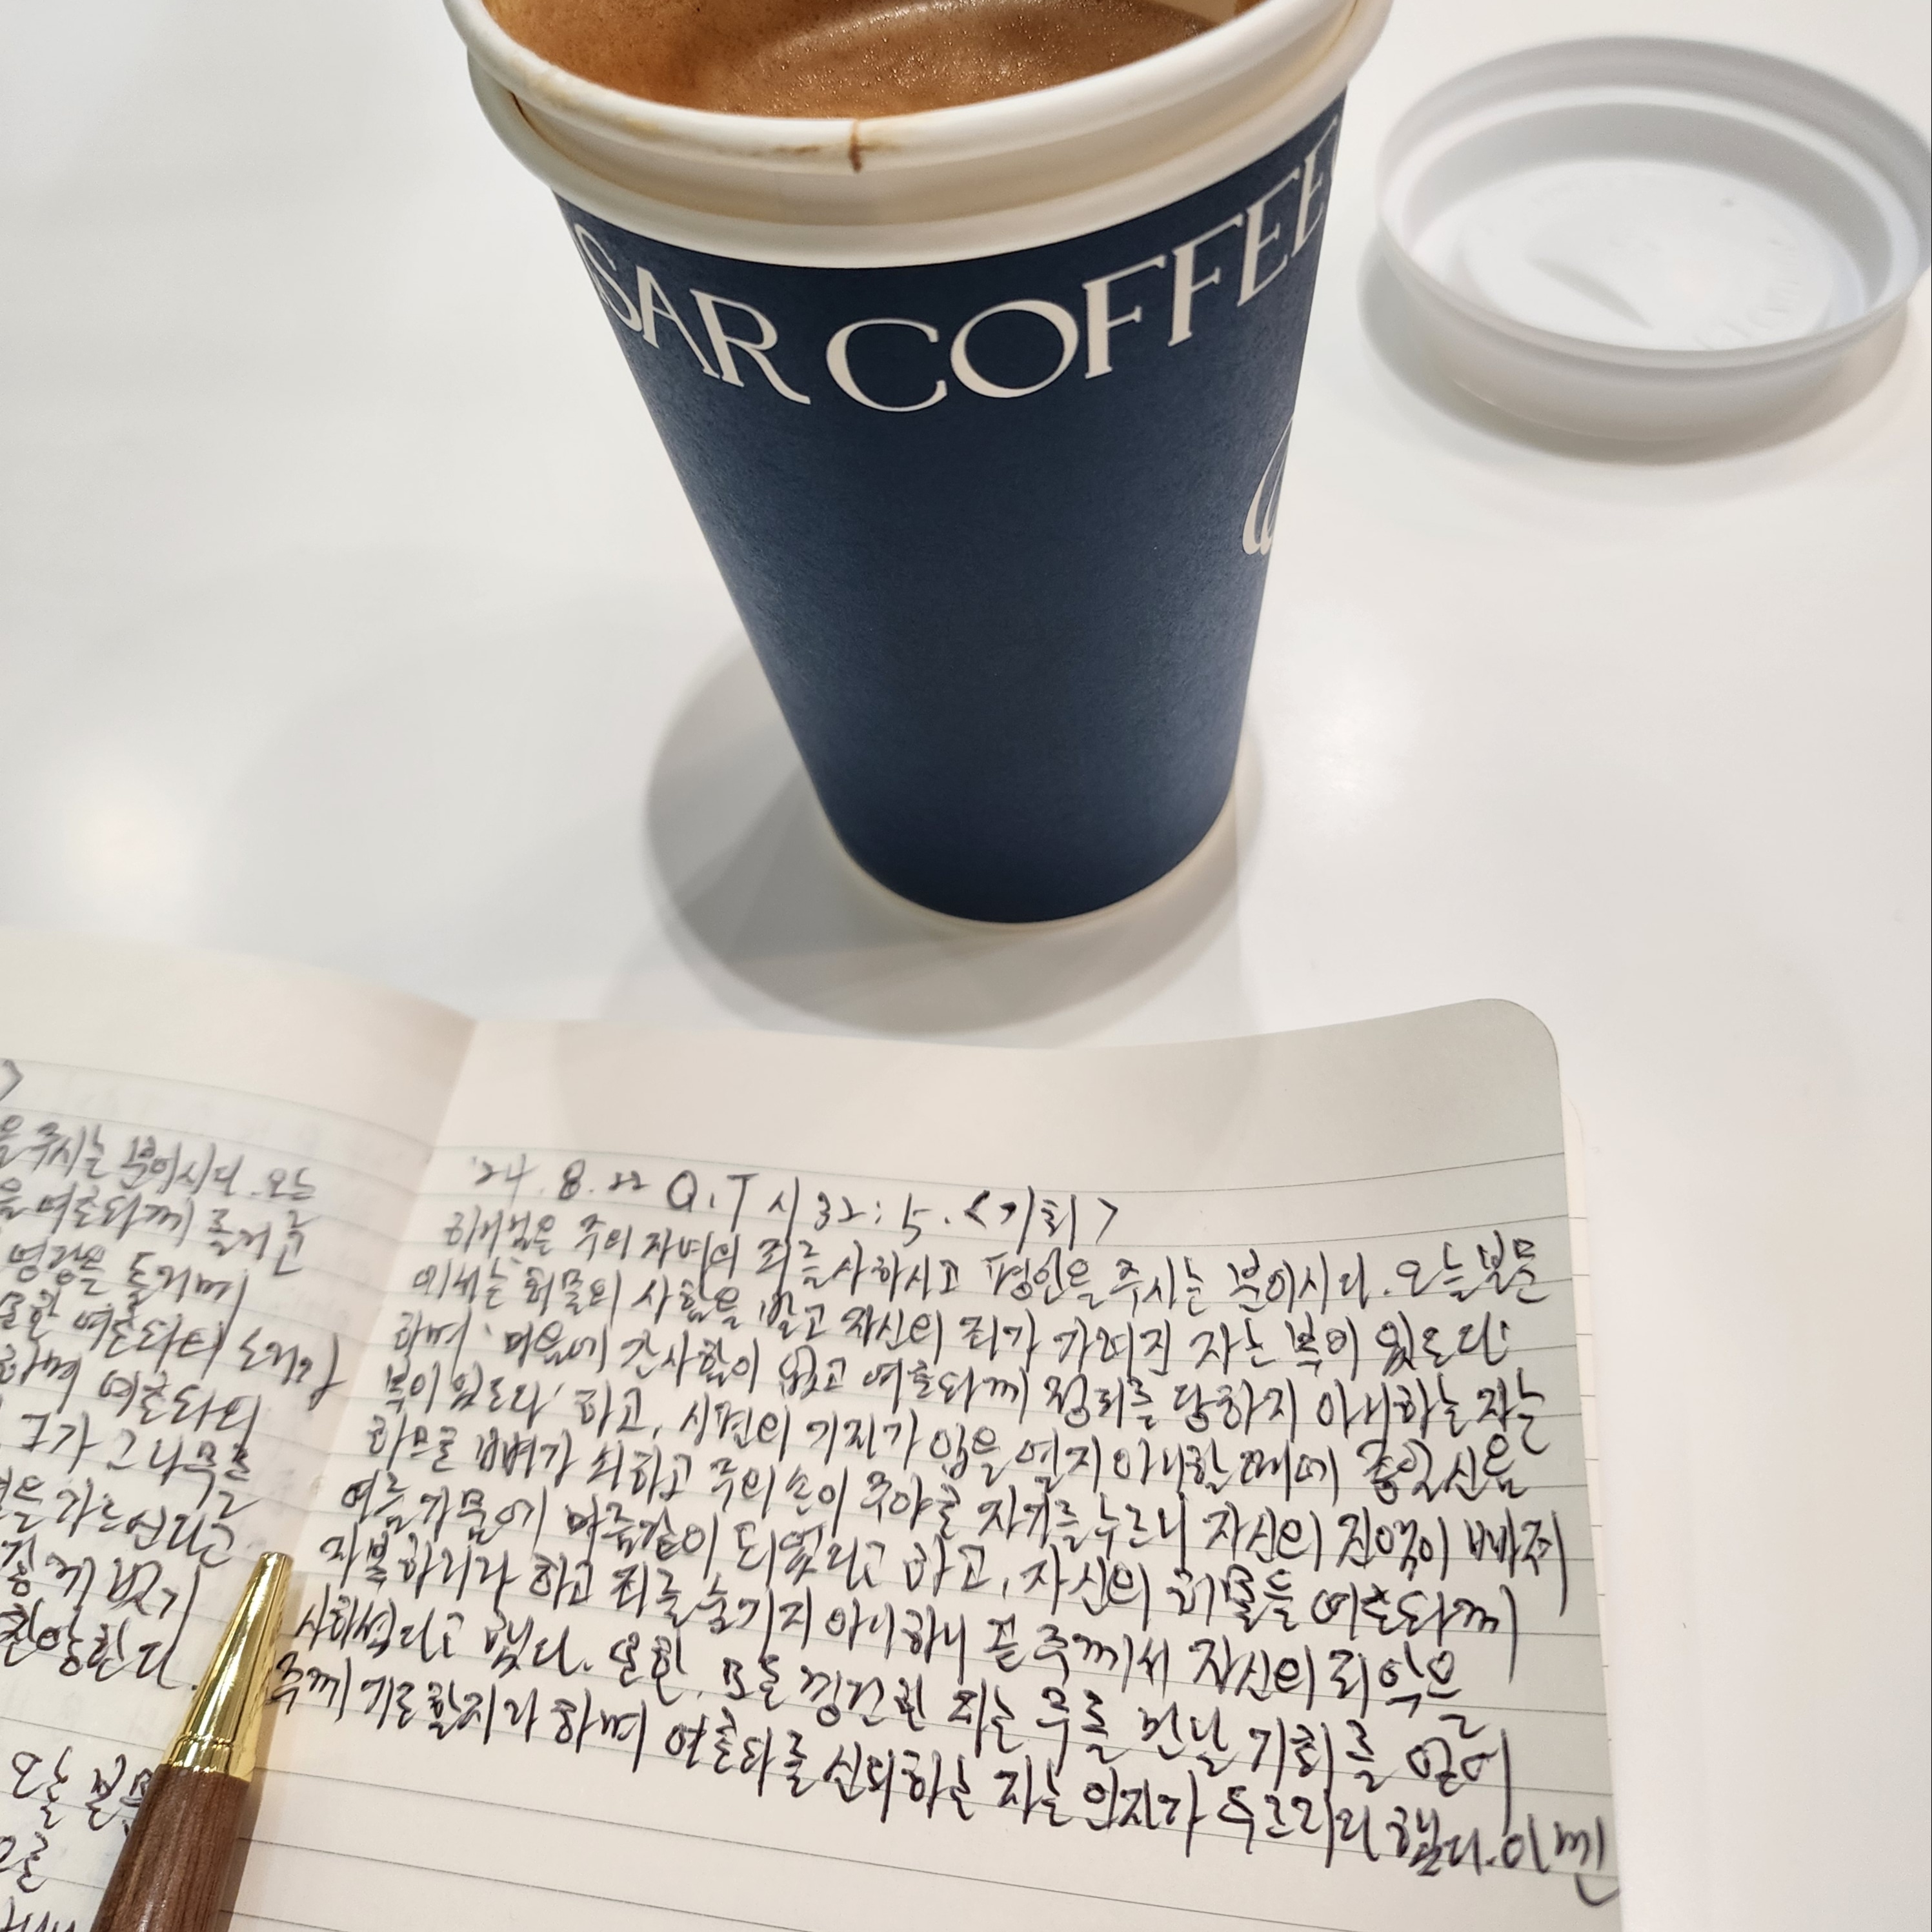 SAR COFFEE
을 주시는 분이시다. 오늘
을 여호와께 돌리고
영광을 돌리며
여호와의 소리가
여호와의
그가 그 나무를
찬양한다.
오늘 본문
'24. 8. 22 Q.T 시 32:5. <기회>
하나님은 주의 자녀의 죄를 사하시고 평안을 주시는 분이시다. 오늘 본문
에서는 허물의 사함을 받고 자신의 죄가 가려진 자는 복이 있도다
하며 마음에 간사함이 없고 여호와께 정죄를 당하지 아니하는 자는
복이 있도다' 하고, 시편의 기자가 입을 열지 아니할 때에 종일 신음
하므로 뼈가 쇠하고 주의 손이 주야로 자기를 누르니 자신의 진액이 빠져
여름 가뭄에 마름같이 되었다고 하고, 자신의 허물을 여호와께
자복하리라 하고 죄를 숨기지 아니하니 곧 주께서 자신의 죄악을
사하셨다고 했다. 또한, 모든 경건한 자는 주를 만날 기회를 얻어
주께 기도할지라 하며 여호와를 신뢰하는 자는 인자가 두르리라 했다.